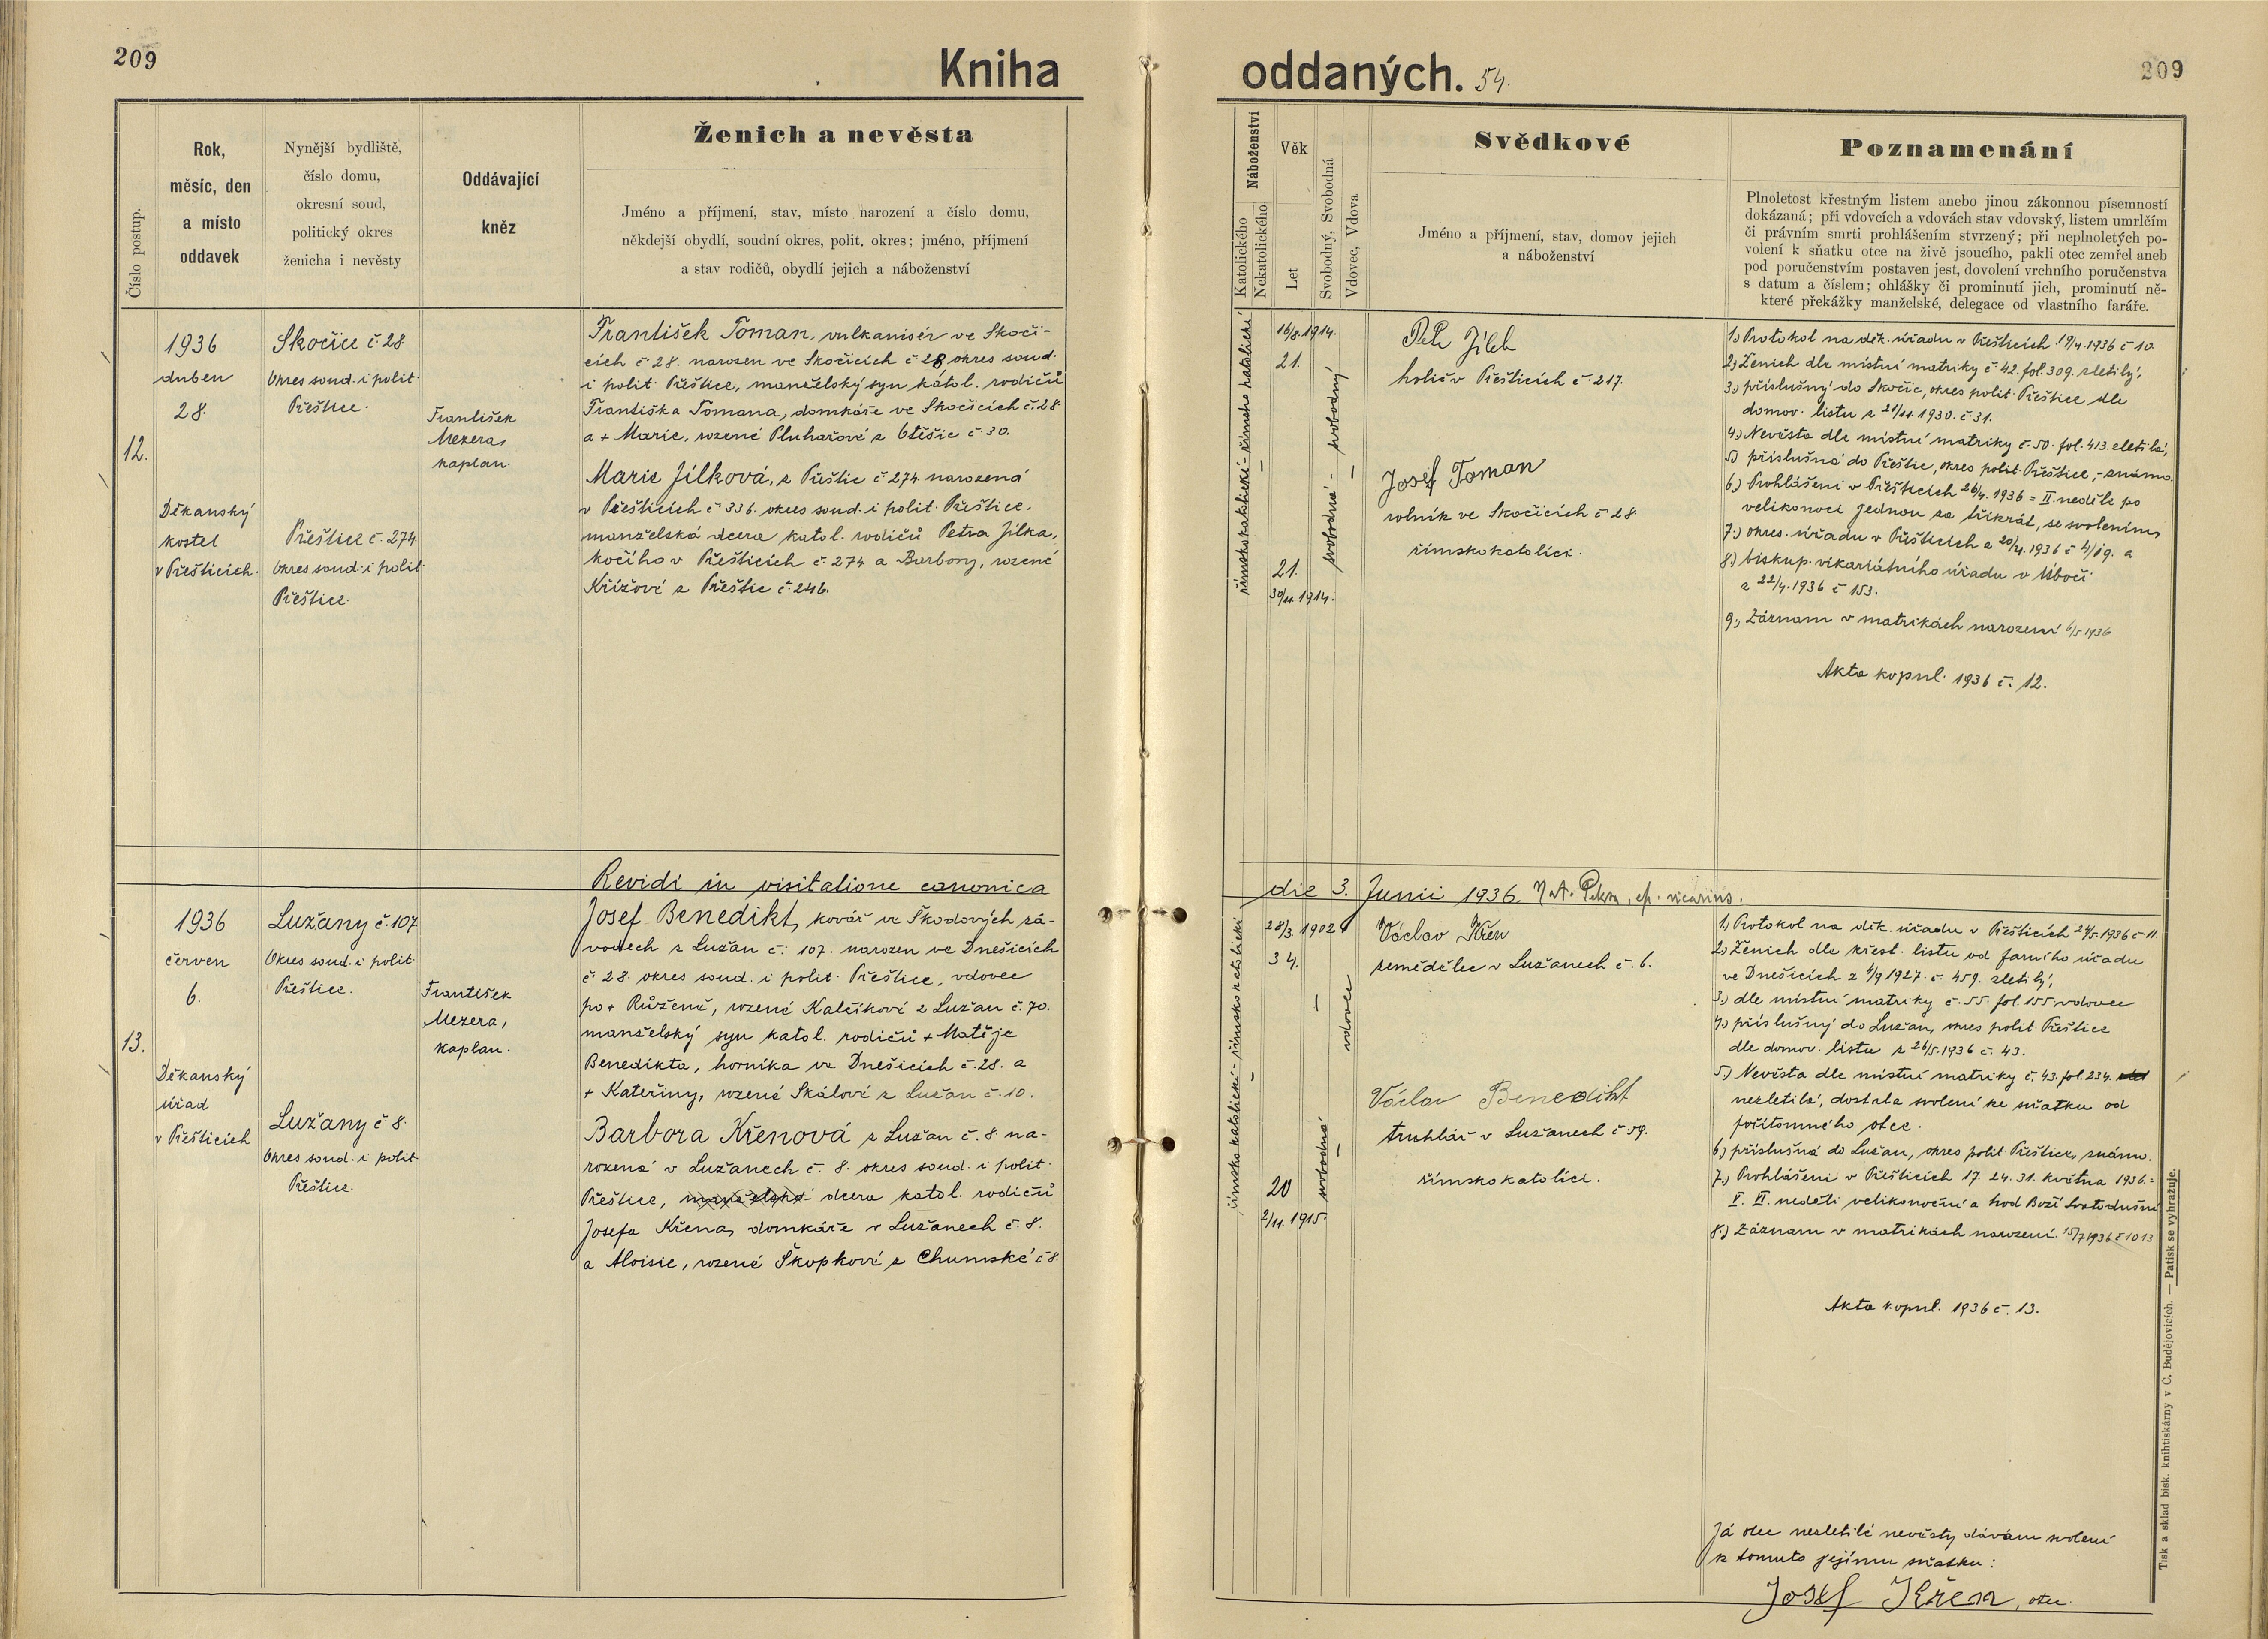 209
Kniha
oddaných. 54.
209
Číslo postup.
Rok,
měsíc, den
a místo
oddavek
Nynější bydliště,
číslo domu,
okresní soud,
politický okres
ženicha i nevěsty
Oddávající
kněz
Ženich a nevěsta
Jméno a příjmení, stav, místo narození a číslo domu,
někdejší obydlí, soudní okres, polit. okres; jméno, příjmení
a stav rodičů, obydlí jejich a náboženství
Náboženství
Katolického
Nekatolického
Věk
Let
Svobodný, Svobodná
Vdovec, Vdova
Svědkové
Jméno a příjmení, stav, domov jejich
a náboženství
Poznamenání
Plnoletost křestným listem anebo jinou zákonnou písemností
dokázaná; při vdovcích a vdovách stav vdovský, listem umrlčím
či právním smrti prohlášením stvrzený; při neplnoletých po-
volení k sňatku otce na živě jsoucího, pakli otec zemřel aneb
pod poručenstvím postaven jest, dovolení vrchního poručenstva
s datum a číslem; ohlášky či prominutí jich, prominutí ně-
které překážky manželské, delegace od vlastního faráře.
12.
1936
duben
28.
Děkanský
kostel
v Přešticích.
Skočice č. 28
Okres soud. i polit.
Přeštice.
Přeštice č. 274
okres soud. i polit.
Přeštice.
František
Mezera,
kaplan.
František Toman, vulkanisér ve Skoči-
cích č. 28. narozen ve Skočicích č. 28, okres soud.
i polit. Přeštice, manželský syn katol. rodičů
Františka Tomana, domkáře ve Skočicích č. 28.
a + Marie, rozené Pluhařové z Otěšic č. 30.
Marie Jílková, z Přeštic č. 274 narozená
v Přešticích č. 336. okres soud. i polit. Přeštice,
manželská dcera katol. rodičů Petra Jílka,
kočího v Přešticích č. 274 a Barbory, rozené
Křížové z Přeštic č. 246.
římskokatolické – římskokatolické
16/8. 1914.
21.
21.
30/11. 1914.
svobodná – svobodný
Petr Jílek
holič v Přešticích č. 217.
Josef Toman
rolník ve Skočicích č. 28
římskokatolíci.
1.) Protokol na děk. úřadu v Přešticích 19/4. 1936 č. 10
2.) Ženich dle místní matriky č. 42. fol. 309. zletilý,
3.) příslušný do Skočic, okres polit. Přeštice dle
domov. listu z 21/11. 1930. č. 31.
4.) Nevěsta dle místní matriky č. 50. fol. 413. zletilá,
5.) příslušná do Přeštic, okres polit. Přeštice, – známo.
6.) Prohlášeni v Přešticích 26/4. 1936 = II. neděle po
velikonoci jednou za třikrát, se svolením
7.) okres. úřadu v Přešticích z 20/4. 1936 a
8.) biskup. vikariátního úřadu v Úboči
z 22/4. 1936 č. 153.
9.) Záznam v matrikách narození 6/5 1936
Akta kopul. 1936 č. 12.
Revidi in visitatione canonica
die 3. Junii 1936. ep. vicarius.
13.
1936
červen
6.
Děkanský
úřad
v Přešticích
Lužany č. 107
Okres soud. i polit.
Přeštice.
Lužany č. 8.
Okres soud. i polit.
Přeštice.
František
Mezera,
kaplan.
Josef Benedikt, kovář ve Škodových zá-
vodech z Lužan č. 107. narozen ve Dnešicích
č. 28. okres soud. i polit. Přeštice, vdovec
po + Růženě, rozené Kalčíkové z Lužan č. 70.
manželský syn katol. rodičů + Matěje
Benedikta, horníka ve Dnešicích č. 28. a
+ Kateřiny, rozené Skálové z Lužan č. 10.
Barbora Křenová z Lužan č. 8 na-
rozená v Lužanech č. 8. okres soud. i polit.
Přeštice, manželská dcera katol. rodičů
Josefa Křena, domkáře v Lužanech č. 8.
a Aloisie, rozené Škopkové z Chumské č. 8.
římskokatolické – římskokatolické
28/3. 1902
34.
20
2/11. 1915.
svobodná
vdovec
Václav Křen
zemědělec v Lužanech č. 6.
Václav Benedikt
truhlář v Lužanech č. 59.
římskokatolíci.
1.) Protokol na děk. úřadu v Přešticích 1936 č. 11.
2.) Ženich dle křest. listu od farního úřadu
ve Dnešicích z 1/9 1927. č. 459. zletilý,
3.) dle místní matriky č. 55. fol. 155 vdovec
4.) příslušný do Lužan, okres polit. Přeštice
dle domov. listu z 26/5. 1936 č. 43.
5.) Nevěsta dle místní matriky č. 43. fol. 234.
nezletilá, dostala svolení ke sňatku od
přítomného otce.
6.) příslušná do Lužan, okres polit. Přeštice, známo.
7.) Prohlášeni v Přešticích 17. 24. 31. května 1936. =
V. VI. neděli velikonoční a hod Boží Svatodušní
8.) Záznam v matrikách narození 15/7 1936 č. 1013
Akta kopul. 1936 č. 13.
Já otec nezletilé nevěsty dávám svolení
k tomuto jejímu sňatku:
Josef Křen, otec.
Tisk a sklad bisk. knihtiskárny v C. Budějovicích. — Patisk se vyhražuje.